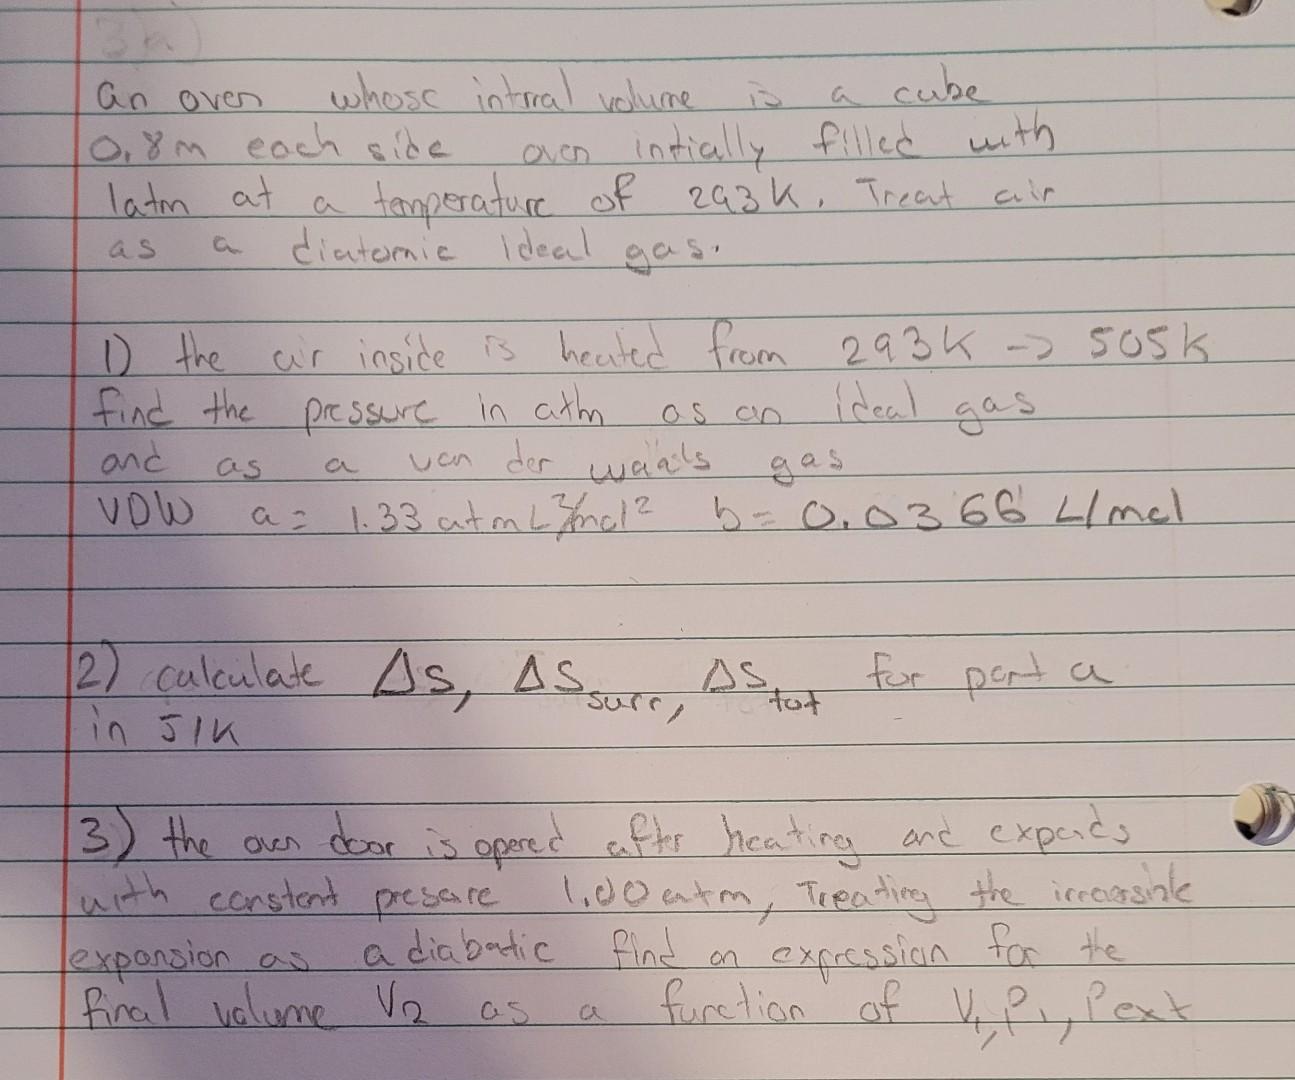 3a)
an oven whose intrral volume is a cube
0.8m each side oven intially filled with
1atm at a temperature of 293K. Treat air
as a diatomic ideal gas.
1) the air inside is heated from 293K -> 505K
find the pressure in atm as an ideal gas
and as a van der waals gas
VDW a = 1.33 atm L²/mol² b = 0.0366 L/mol
2) calculate ΔS, ΔSsurr, ΔStot for part a
in J/K
3) the oven door is opened after heating and expands
with constant presure 1.00 atm, Treating the irreversible
expansion as adiabatic find an expression for the
final volume V2 as a function of V1, P1, Pext